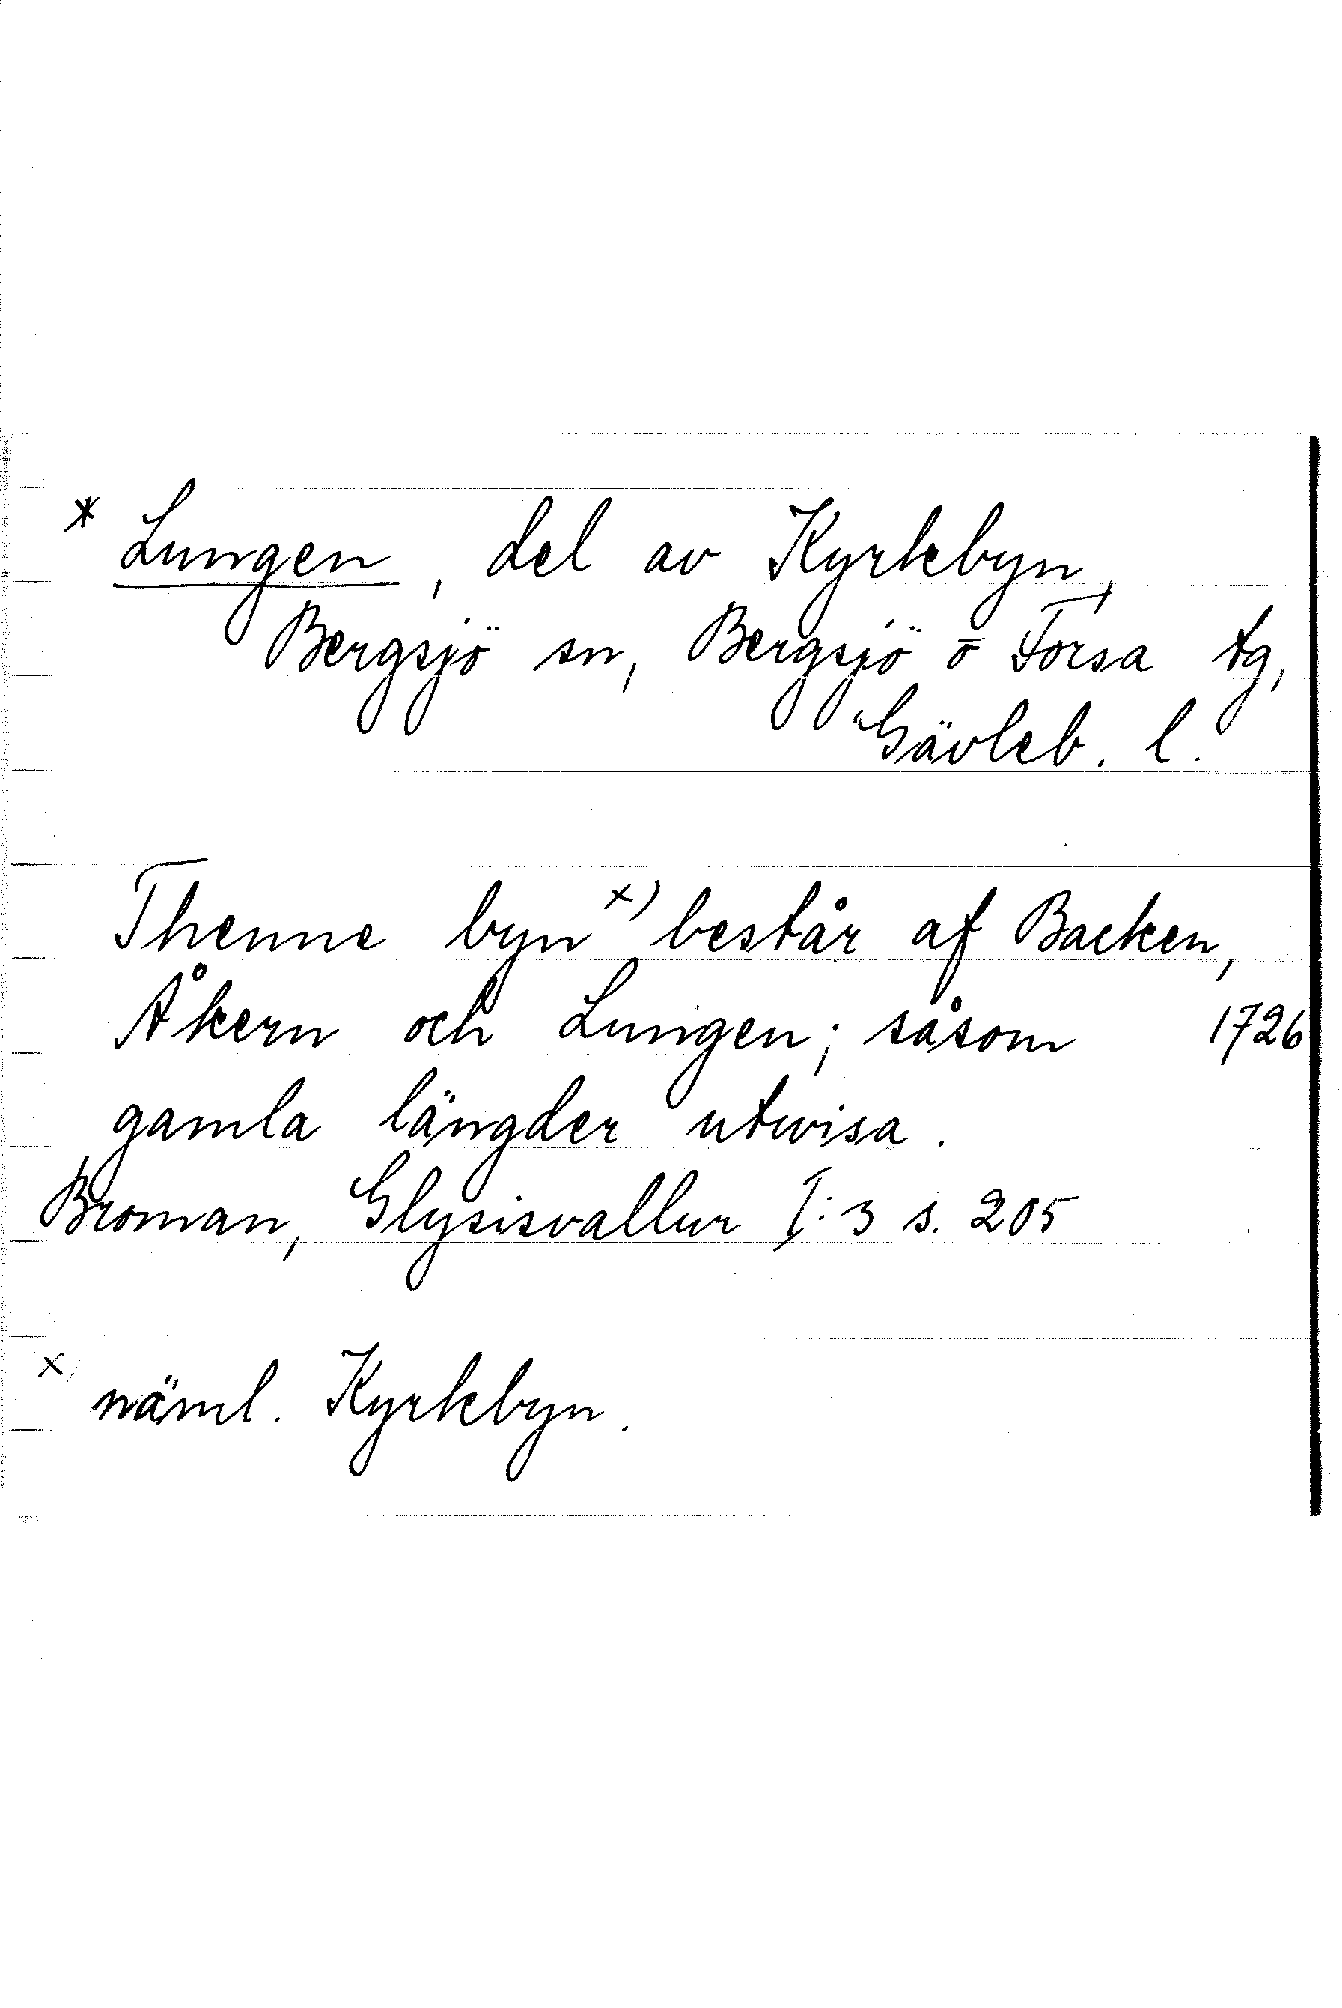 * Lungen, del av Kyrkebyn,
Bergsjö sn, Bergsjö o Forsa tg,
Gävleb. l.
Thenne byn x) består af Backen,
Åkern och Lungen; såsom 1726
gamla längder utwisa.
Broman, Glysisvallur I:3 s. 205
x) näml. Kyrkbyn.